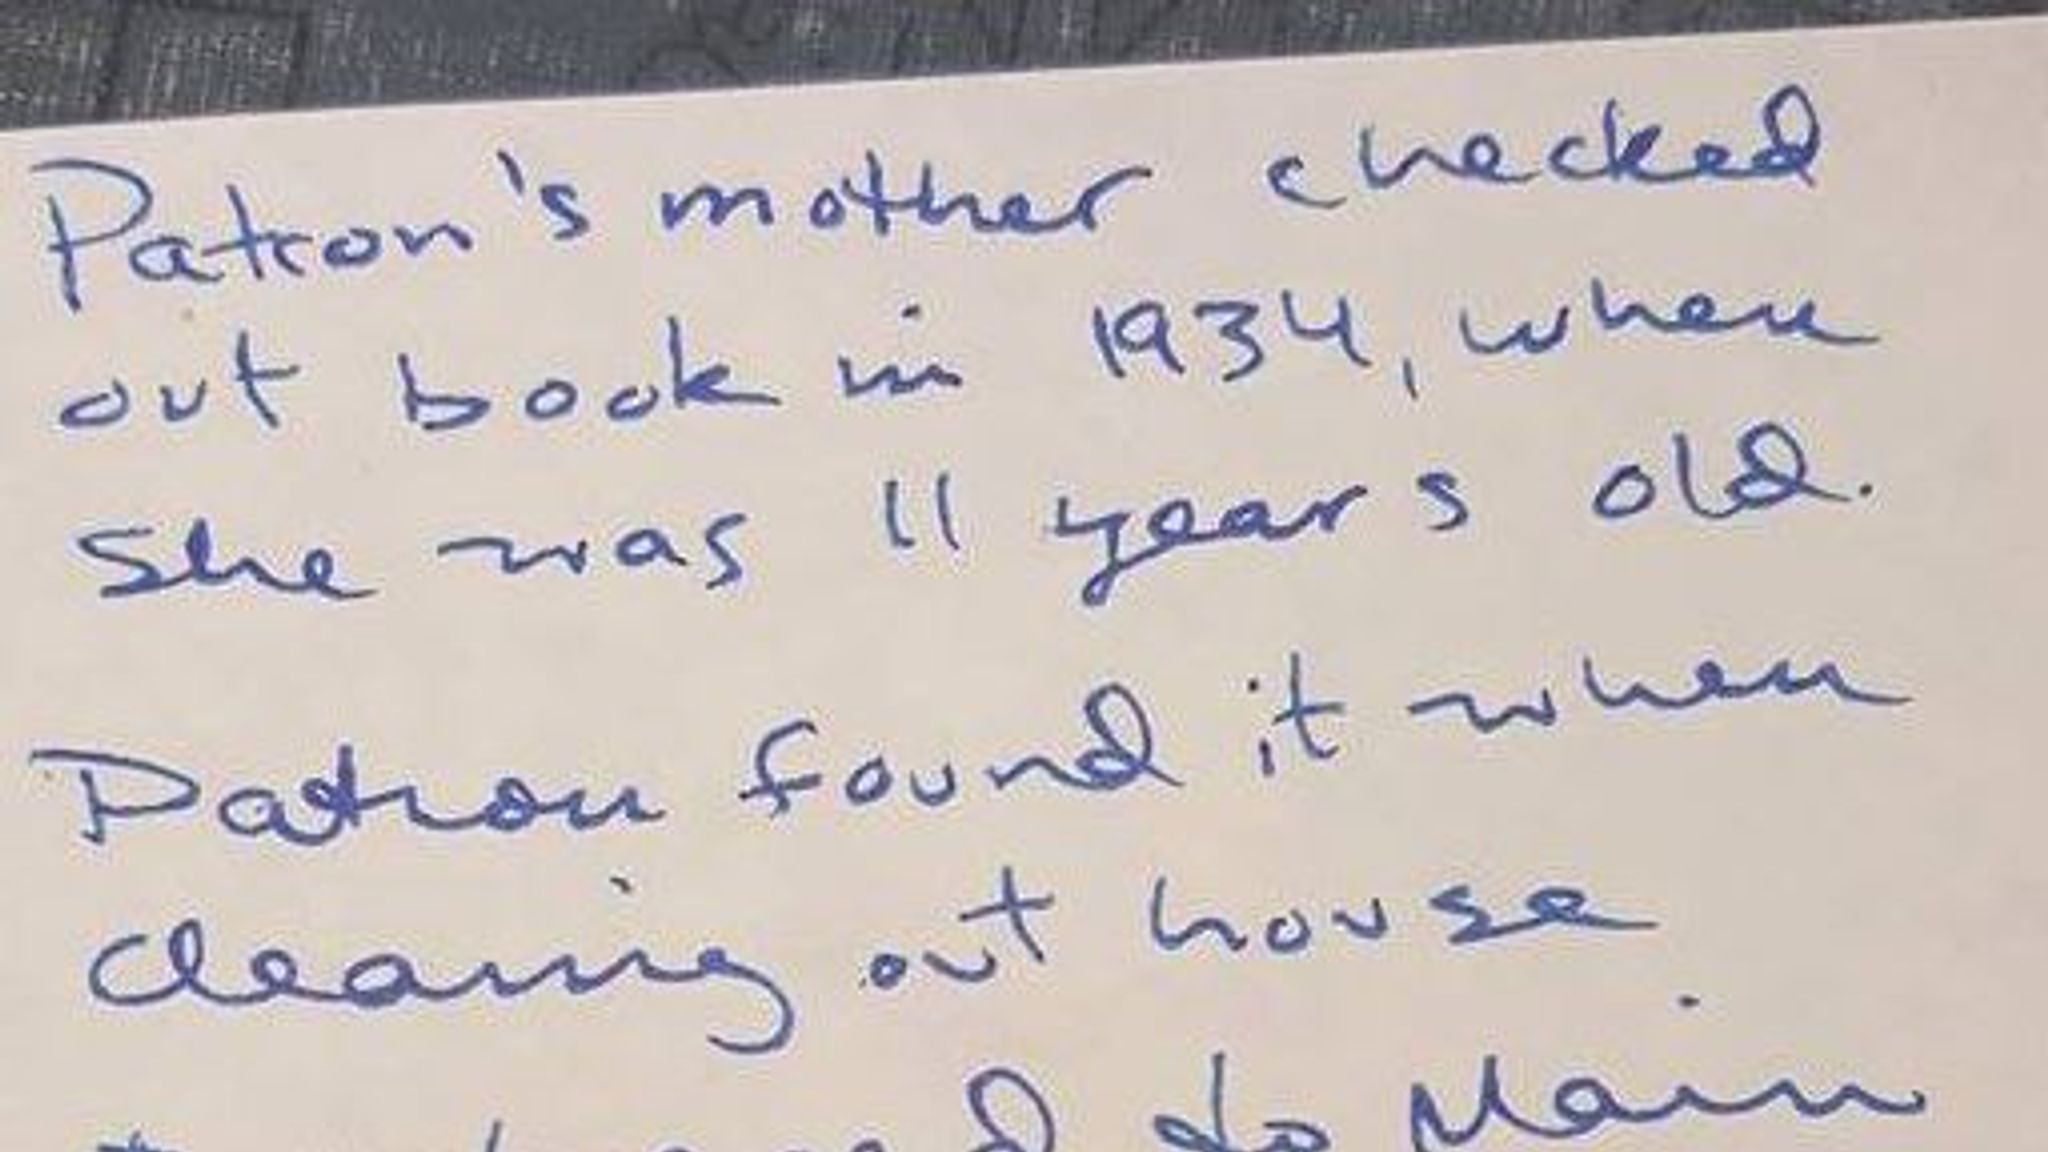 Patron's mother checked
out book in 1934, when
she was 11 years old.
Patron found it when
cleaning out house
to Main